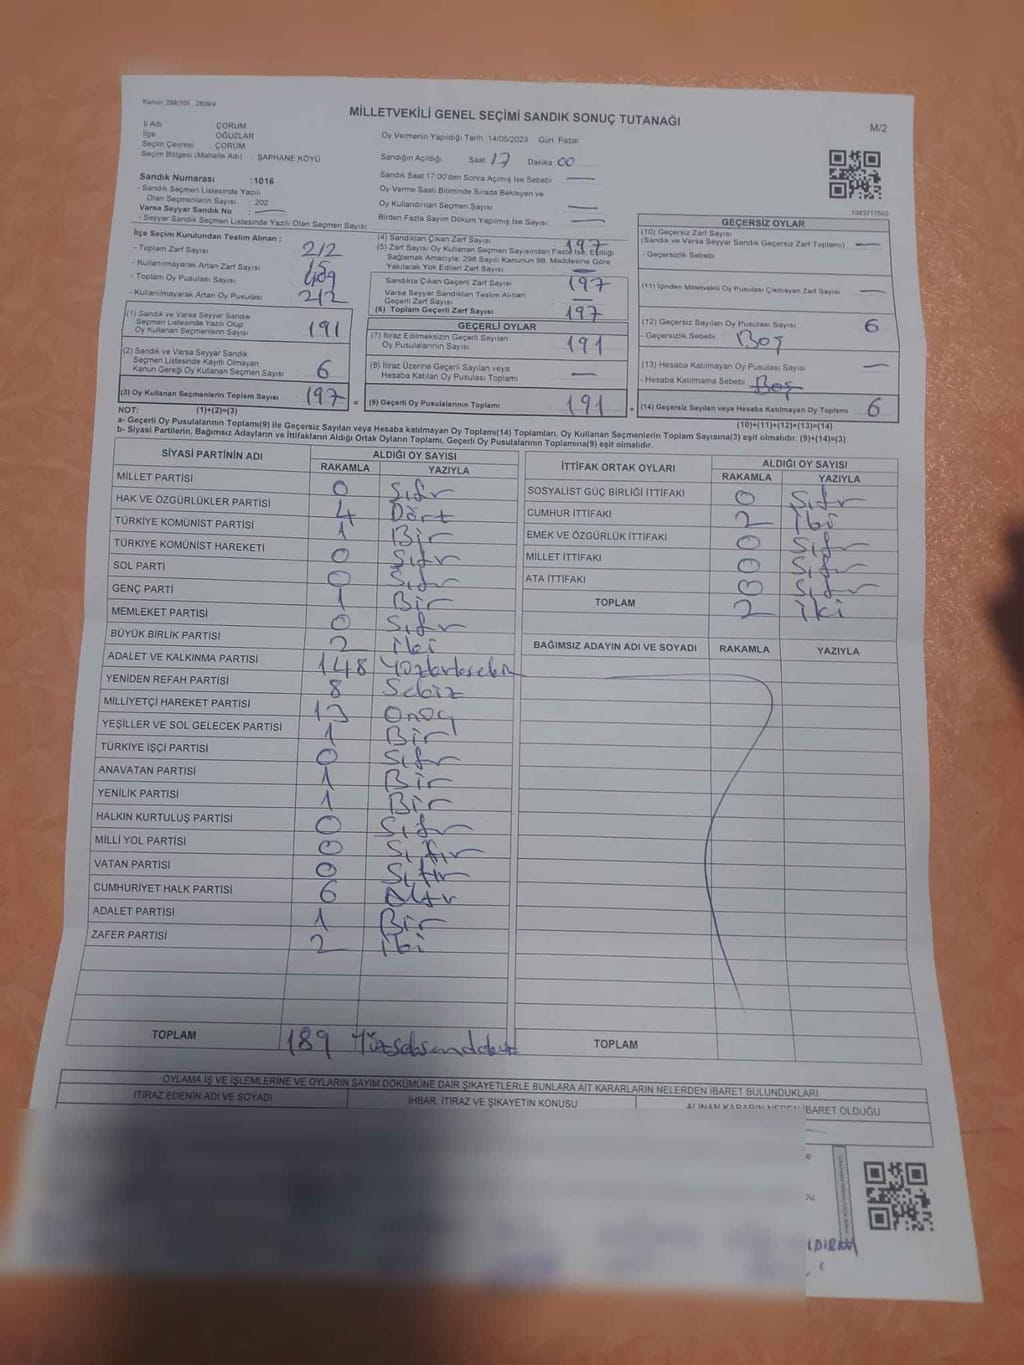 Kanun: 298/105 , 2839/4
MİLLETVEKİLİ GENEL SEÇİMİ SANDIK SONUÇ TUTANAĞI
M/2
İl Adı : ÇORUM
İlçe : OĞUZLAR
Seçim Çevresi : ÇORUM
Seçim Bölgesi (Mahalle Adı) : ŞAPHANE KÖYÜ
Oy Vermenin Yapıldığı Tarih :14/05/2023 Gün: Pazar
Sandığın Açıldığı Saat 17 Dakika 00
Sandık Saat 17:00'den Sonra Açımış İse Sebebi
Oy Verme Saati Bitiminde Sırada Bekleyen ve
Oy Kullandırılan Seçmen Sayısı :
Birden Fazla Sayım Döküm Yapılmış İse Sayısı :
Sandık Numarası : 1016
- Sandık Seçmen Listesinde Yazılı
Olan Seçmenlerin Sayısı : 202
Varsa Seyyar Sandık No :
- Seyyar Sandık Seçmen Listesinde Yazılı Olan Seçmen Sayısı:
1083717593
İlçe Seçim Kurulundan Teslim Alınan ;
- Toplam Zarf Sayısı 212
- Kullanılmayarak Artan Zarf Sayısı 15
- Toplam Oy Pusulası Sayısı
- Kullanılmayarak Artan Oy Pusulası 212
(1) Sandık ve Varsa Seyyar Sandık
Seçmen Listesinde Yazılı Olup
Oy Kullanan Seçmenlerin Sayısı 191
(2) Sandık ve Varsa Seyyar Sandık
Seçmen Listesinde Kayıtlı Olmayan
Kanun Gereği Oy Kullanan Seçmen Sayısı 6
(3) Oy Kullanan Seçmenlerin Toplam Sayısı 197 =
(4) Sandıktan Çıkan Zarf Sayısı 197
(5) Zarf Sayısı Oy Kullanan Seçmen Sayısından Fazla İse, Eşitliği
Sağlamak Amacıyla, 298 Sayılı Kanunun 98. Maddesine Göre
Yakılarak Yok Edilen Zarf Sayısı
Sandıkta Çıkan Geçerli Zarf Sayısı 197
Varsa Seyyar Sandıktan Teslim Alınan
Geçerli Zarf Sayısı
(6) Toplam Geçerli Zarf Sayısı 197
GEÇERLİ OYLAR
(7) İtiraz Edilmeksizin Geçerli Sayılan
Oy Pusulalarının Sayısı 191
(8) İtiraz Üzerine Geçerli Sayılan veya
Hesaba Katılan Oy Pusulası Toplamı
(9) Geçerli Oy Pusulalarının Toplamı 191 +
GEÇERSİZ OYLAR
(10) Geçersiz Zarf Sayısı
(Sandık ve Varsa Seyyar Sandık Geçersiz Zarf Toplamı)
- Geçersizlik Sebebi :
(11) İçinden Milletvekili Oy Pusulası Çıkmayan Zarf Sayısı
(12) Geçersiz Sayılan Oy Pusulası Sayısı 6
- Geçersizlik Sebebi : Boş
(13) Hesaba Katılmayan Oy Pusulası Sayısı
- Hesaba Katılmama Sebebi : Boş
(14) Geçersiz Sayılan veya Hesaba Katılmayan Oy Toplamı 6
NOT: (1)+(2)=(3)
(10)+(11)+(12)+(13)=(14)
a- Geçerli Oy Pusulalarının Toplamı(9) ile Geçersiz Sayılan veya Hesaba Katılmayan oy Toplamı(14) Toplamları, Oy Kullanan Seçmenlerin Toplam Sayısına(3) eşit olmalıdır. (9)+(14)=(3)
b- Siyasi Partilerin, Bağımsız Adayların ve İttifakların Aldığı Ortak Oyların Toplamı, Geçerli Oy Pusulalarının Toplamına(9) eşit olmalıdır.
SİYASİ PARTİNİN ADI ALDIĞI OY SAYISI
RAKAMLA YAZIYLA
MİLLET PARTİSİ 0 Sıfır
HAK VE ÖZGÜRLÜKLER PARTİSİ 4 Dört
TÜRKİYE KOMÜNİST PARTİSİ 1 Bir
TÜRKİYE KOMÜNİST HAREKETİ 0 Sıfır
SOL PARTİ 0 Sıfır
GENÇ PARTİ 1 Bir
MEMLEKET PARTİSİ 0 Sıfır
BÜYÜK BİRLİK PARTİSİ 2 iki
ADALET VE KALKINMA PARTİSİ 148
YENİDEN REFAH PARTİSİ 8 Sekiz
MİLLİYETÇİ HAREKET PARTİSİ 13 Onüç
YEŞİLLER VE SOL GELECEK PARTİSİ 1 Bir
TÜRKİYE İŞÇİ PARTİSİ 0 Sıfır
ANAVATAN PARTİSİ 1 Bir
YENİLİK PARTİSİ 1 Bir
HALKIN KURTULUŞ PARTİSİ 0 Sıfır
MİLLİ YOL PARTİSİ 0 Sıfır
VATAN PARTİSİ 0 Sıfır
CUMHURİYET HALK PARTİSİ 6 Altı
ADALET PARTİSİ 1 Bir
ZAFER PARTİSİ 2 iki
TOPLAM 189 Yüzseksendokuz
İTTİFAK ORTAK OYLARI ALDIĞI OY SAYISI
RAKAMLA YAZIYLA
SOSYALİST GÜÇ BİRLİĞİ İTTİFAKI 0 Sıfır
CUMHUR İTTİFAKI 2 iki
EMEK VE ÖZGÜRLÜK İTTİFAKI 0 Sıfır
MİLLET İTTİFAKI 0 Sıfır
ATA İTTİFAKI 0 Sıfır
TOPLAM 2 iki
BAĞIMSIZ ADAYIN ADI VE SOYADI RAKAMLA YAZIYLA
TOPLAM
OYLAMA İŞ VE İŞLEMLERİNE VE OYLARIN SAYIM DÖKÜMÜNE DAİR ŞİKAYETLERLE BUNLARA AİT KARARLARIN NELERDEN İBARET BULUNDUKLARI
İTİRAZ EDENİN ADI VE SOYADI İHBAR, İTİRAZ VE ŞİKAYETİN KONUSU ALINAN KARARIN NEDEN İBARET OLDUĞU